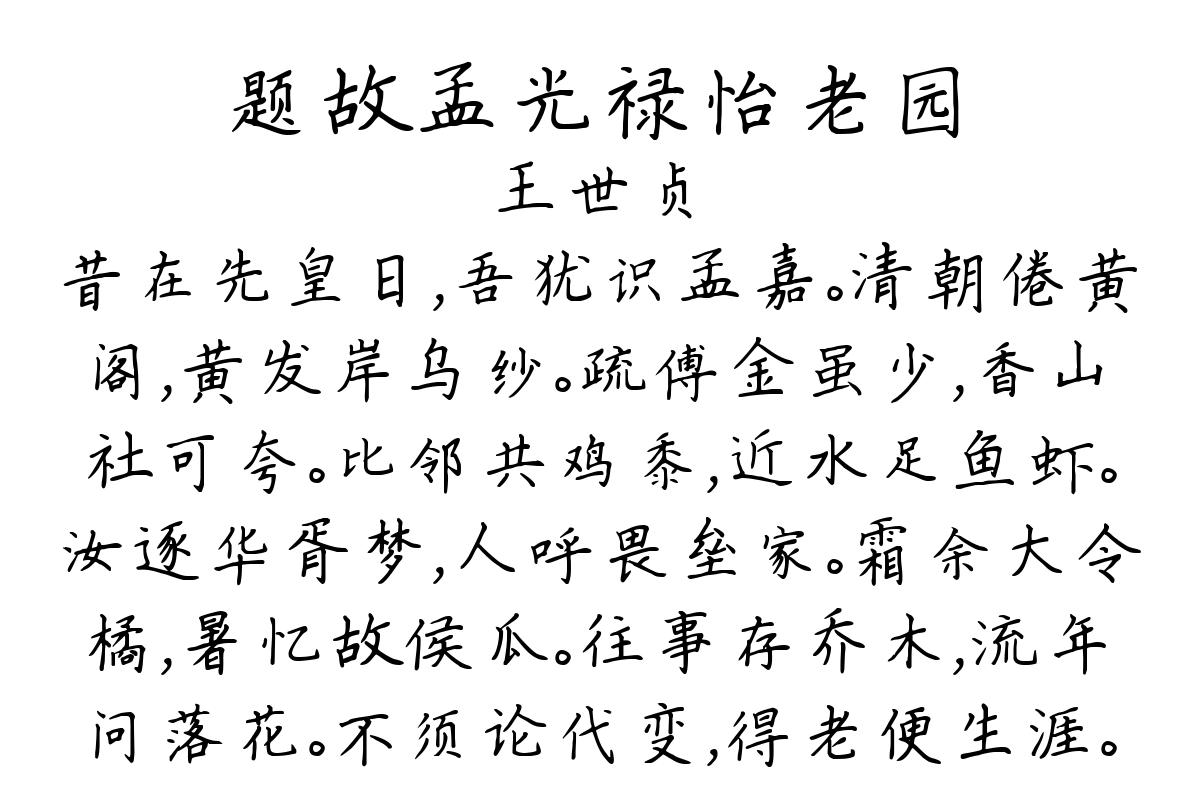 题故孟光禄怡老园
王世贞
昔在先皇日,吾犹识孟嘉。清朝倦黄
阁,黄发岸乌纱。疏傅金虽少,香山
社可夸。比邻共鸡黍,近水足鱼虾。
汝逐华胥梦,人呼畏垒家。霜余大令
橘,暑忆故侯瓜。往事存乔木,流年
问落花。不须论代变,得老便生涯。